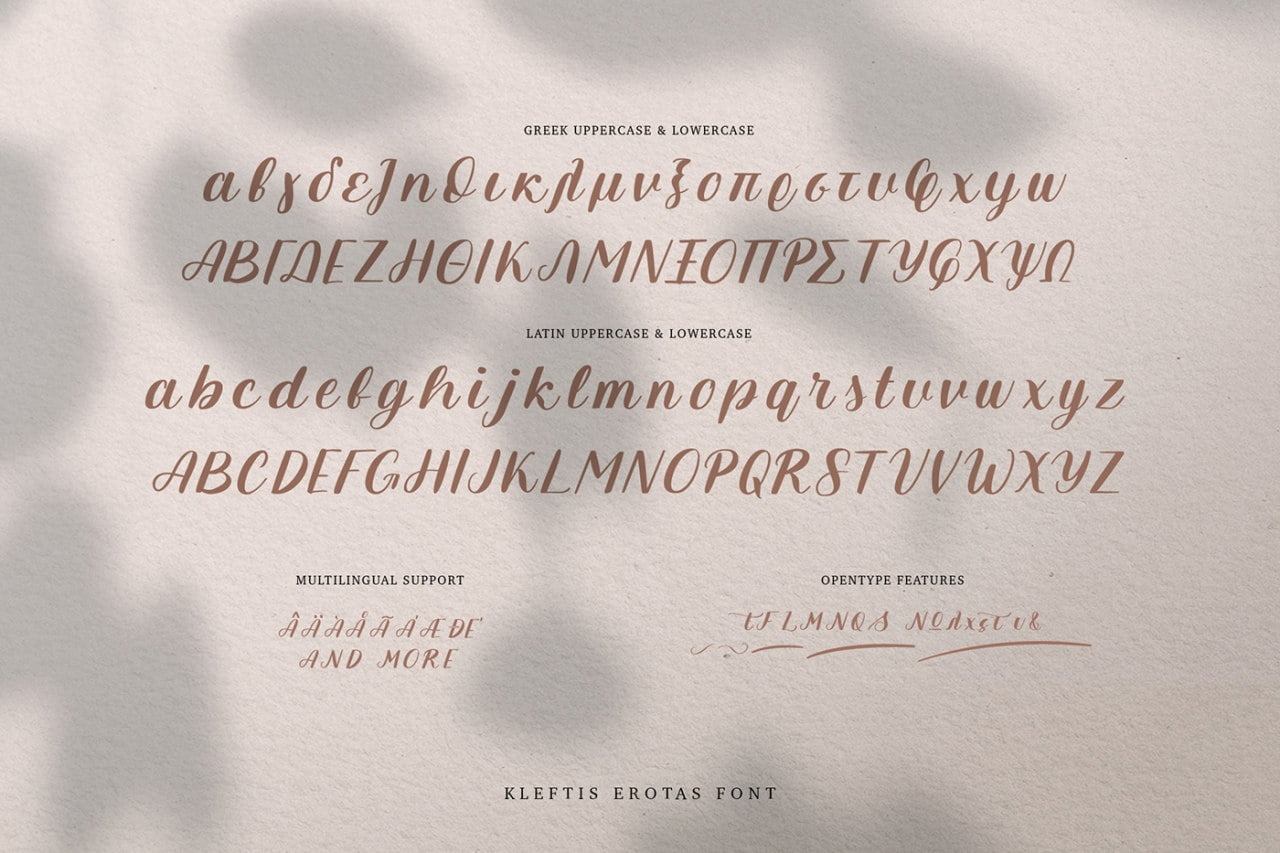 GREEK UPPERCASE & LOWERCASE
αβγδεζηθικλμνξοπρστυφχψω
ΑΒΓΔΕΖΗΘΙΚΛΜΝΞΟΠΡΣΤΥΦΧΨΩ
LATIN UPPERCASE & LOWERCASE
abcdefghijklmnopqrstuvwxyz
ABCDEFGHIJKLMNOPQRSTUVWXYZ
MULTILINGUAL SUPPORT
AND MORE
OPENTYPE FEATURES
KLEFTIS EROTAS FONT